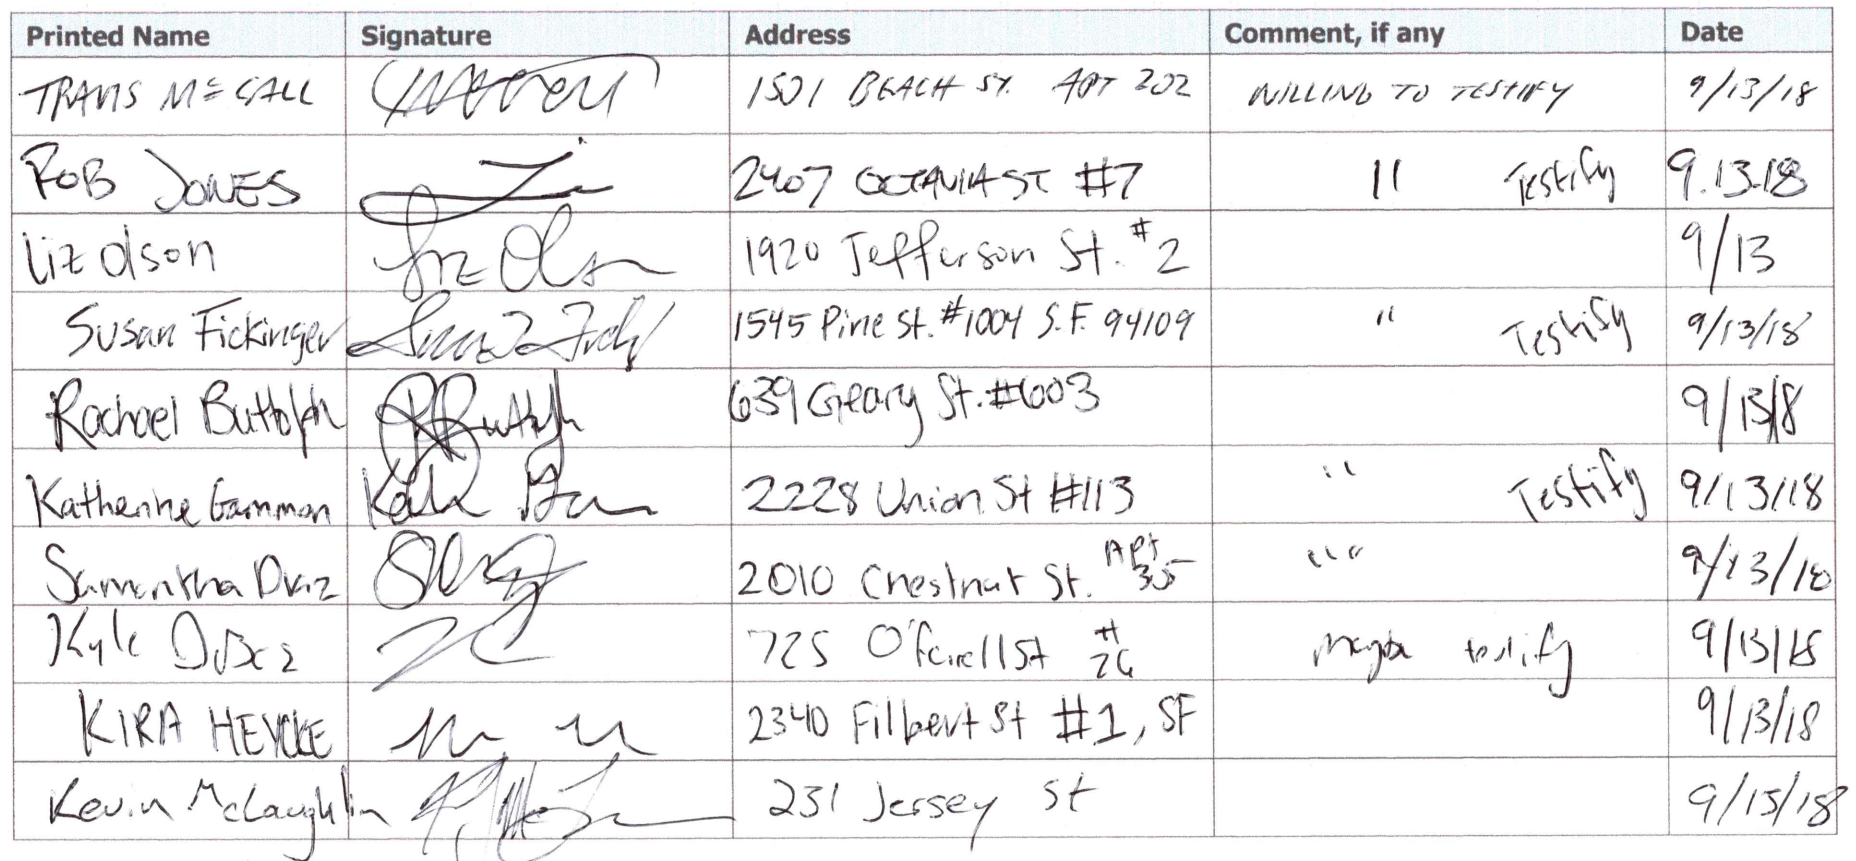 Printed Name Signature Address Comment, if any Date
TRAVIS McCALL 1501 BEACH ST. APT 202 WILLING TO TESTIFY 9/13/18
ROB JONES 2407 OCTAVIA ST #7 " Testify 9.13.18
Liz Olson Liz Olson 1920 Jefferson St. #2 9/13
Susan Fickinger 1545 Pine St. #1004 S.F. 94109 " Testify 9/13/18
Rachael Buttolph RButtolph 639 Geary St. #603 9/13/18
Katherine Gammon 2228 Union St #113 " Testify 9/13/18
Samantha 2010 Chestnut St. Apt 35 " " 9/13/18
Kyle 725 O'farrell St # 26 Maybe testify 9/13/18
KIRA HEYCKE 2340 Filbert St #1, SF 9/13/18
Kevin McLaughlin 231 Jersey St 9/15/18